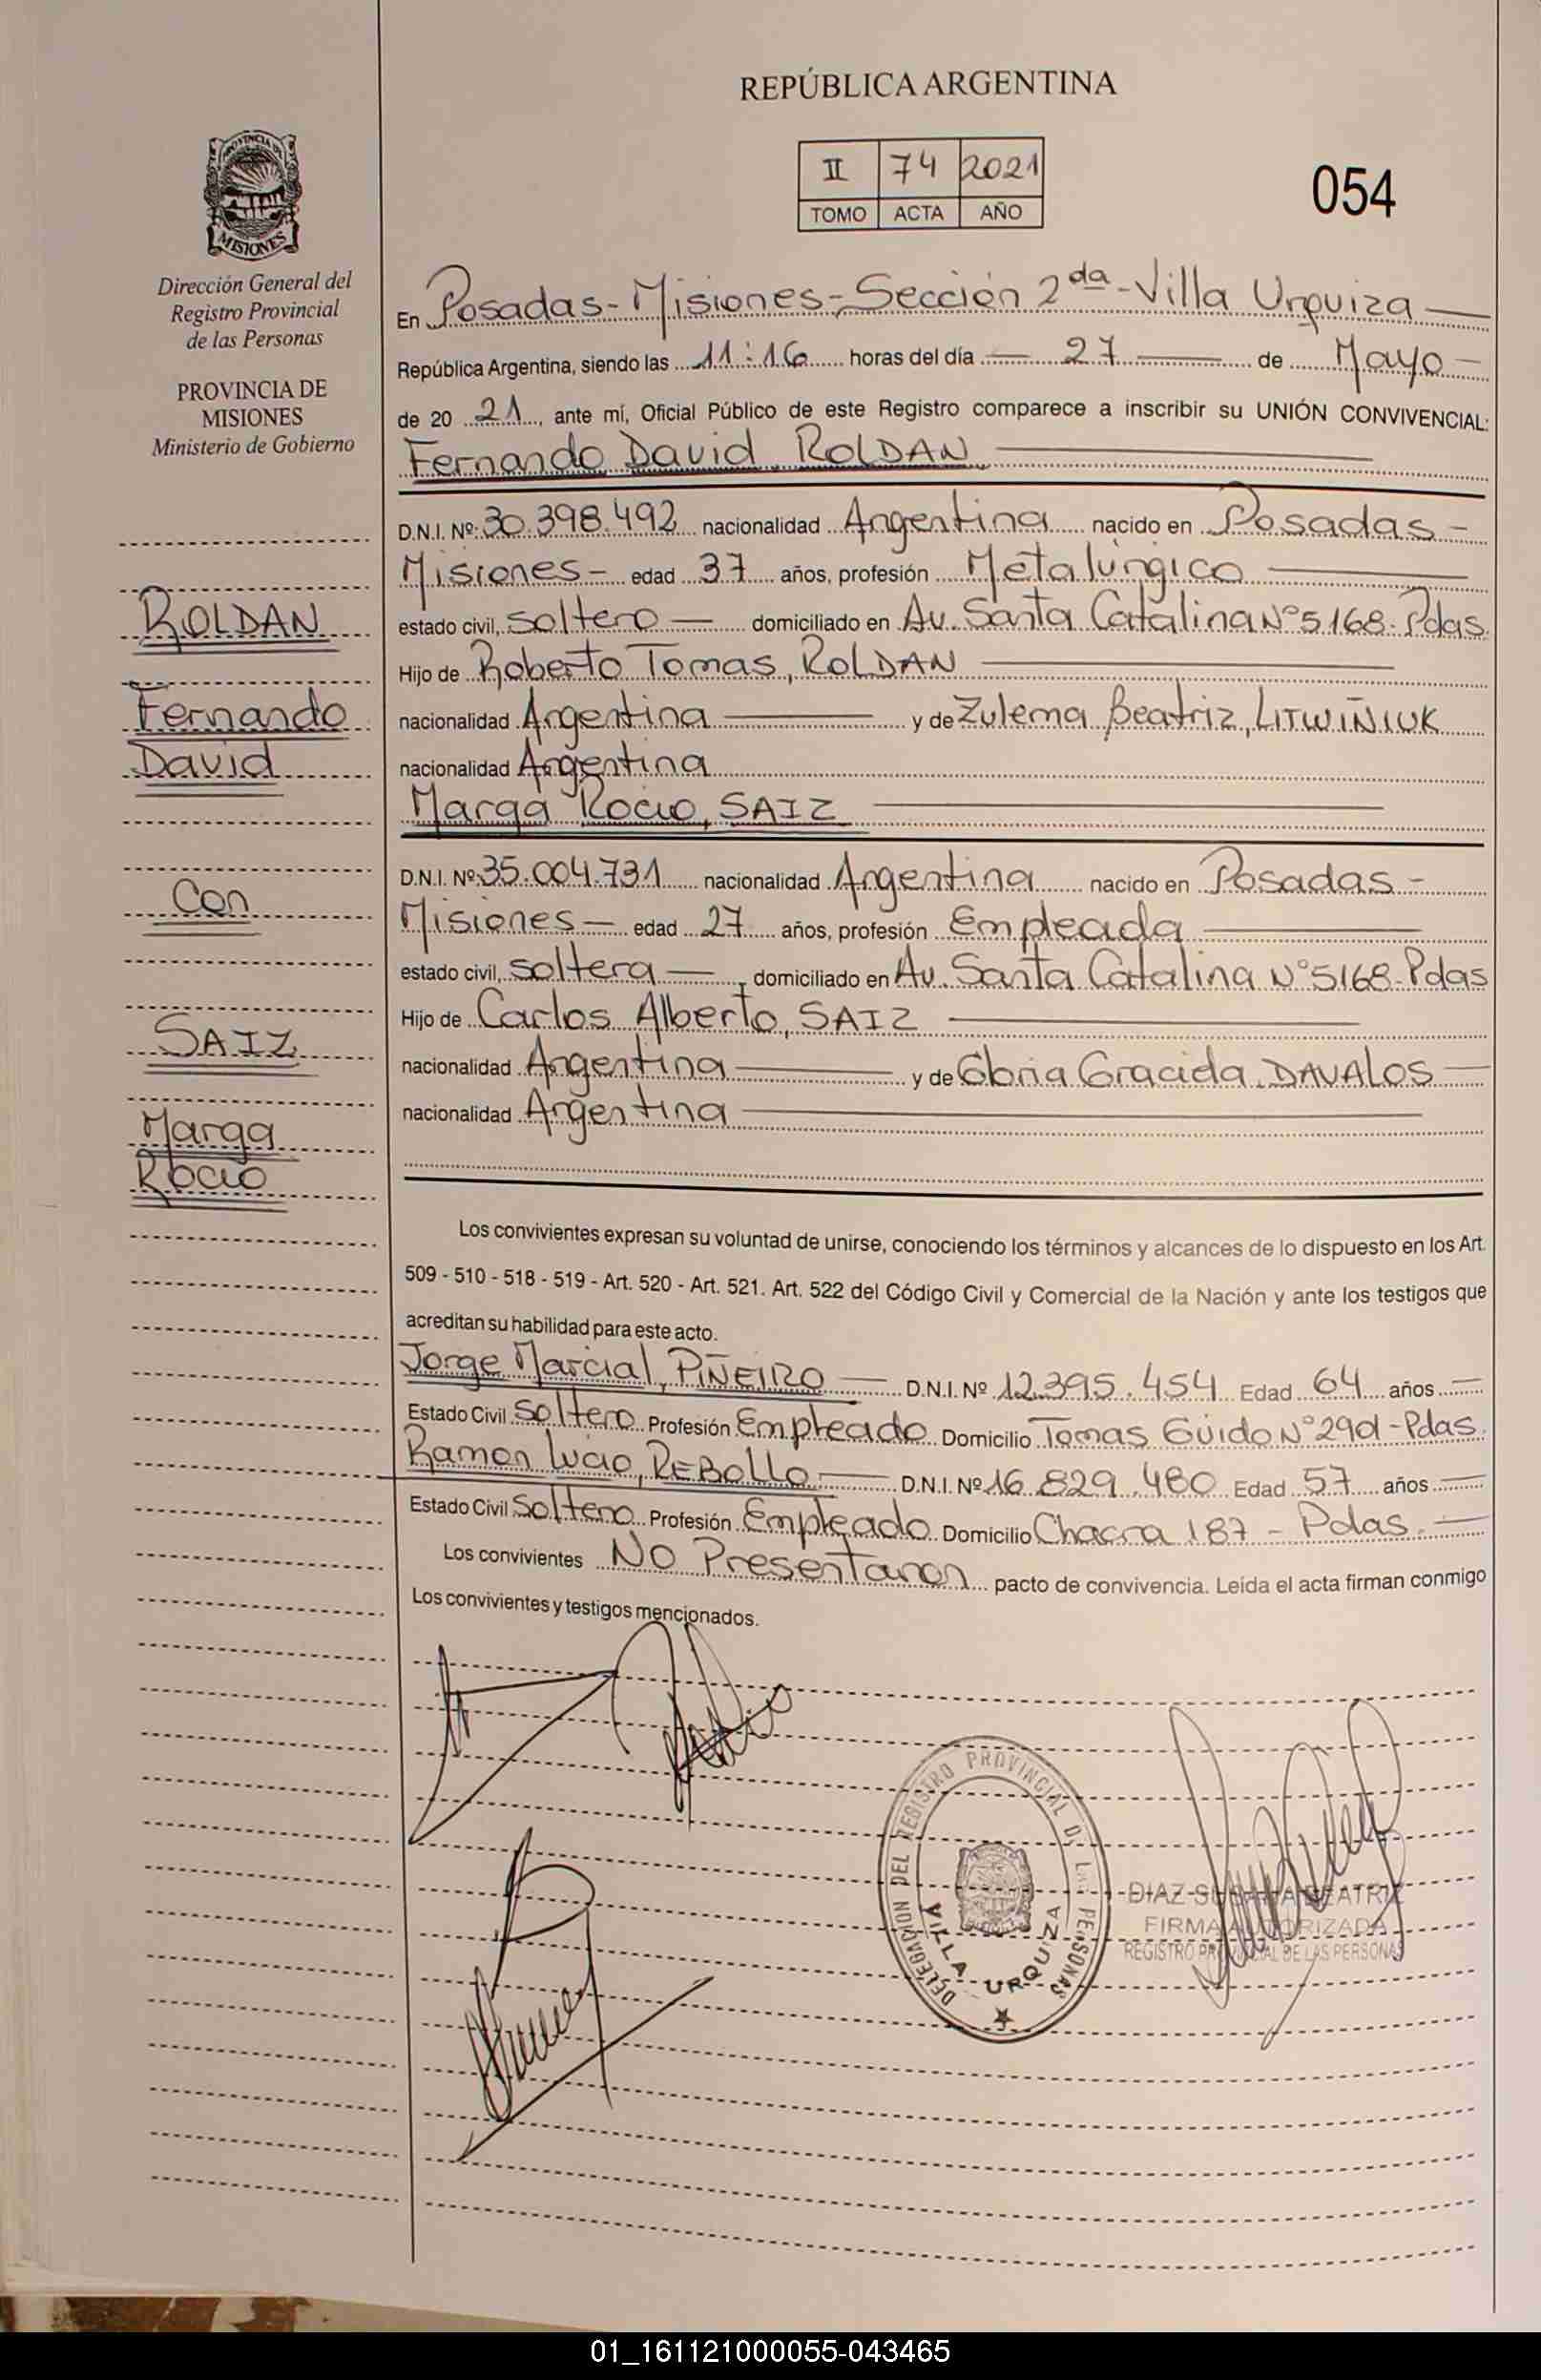 REPÚBLICA ARGENTINA
II 74 2021
TOMO ACTA AÑO
054
PROVINCIA DE
MISIONES
Dirección General del
Registro Provincial
de las Personas
PROVINCIA DE
MISIONES
Ministerio de Gobierno
ROLDAN
Fernando
David
Con
SAIZ
Marga
Rocio
En Posadas - Misiones - Sección 2da - Villa Urquiza
República Argentina, siendo las 11:16 horas del día 27 de Mayo
de 20 21, ante mí, Oficial Público de este Registro comparece a inscribir su UNIÓN CONVIVENCIAL:
Fernando David, ROLDAN
D.N.I. Nº: 30.398.492 nacionalidad Argentina nacido en Posadas -
Misiones - edad 37 años, profesión Metalúrgico
estado civil, soltero domiciliado en Av. Santa Catalina N° 5168 - Pdas.
Hijo de Roberto Tomas, ROLDAN
nacionalidad Argentina y de Zulema Beatriz, LITWIÑIUK
nacionalidad Argentina
Marga Rocio, SAIZ
D.N.I. Nº: 35.004.731 nacionalidad Argentina nacido en Posadas -
Misiones - edad 27 años, profesión Empleada
estado civil, soltera, domiciliado en Av. Santa Catalina N° 5168 - Pdas
Hijo de Carlos Alberto, SAIZ
nacionalidad Argentina y de Gloria Graciela, DAVALOS
nacionalidad Argentina
Los convivientes expresan su voluntad de unirse, conociendo los términos y alcances de lo dispuesto en los Art.
509 - 510 - 518 - 519 - Art. 520 - Art. 521. Art. 522 del Código Civil y Comercial de la Nación y ante los testigos que
acreditan su habilidad para este acto.
Jorge Marcial, PIÑEIRO D.N.I. Nº 12.395.454 Edad 64 años
Estado Civil Soltero Profesión Empleado Domicilio Tomas Guido N° 2901 - Pdas.
Ramon Lucio, REBOLLO D.N.I. Nº 16.829.480 Edad 57 años
Estado Civil Soltero Profesión Empleado Domicilio Chacra 187 - Pdas.
Los convivientes No Presentaron pacto de convivencia. Leída el acta firman conmigo
Los convivientes y testigos mencionados.
DELEGACION DEL REGISTRO PROVINCIAL DE LAS PERSONAS
VILLA URQUIZA
DIAZ SUSANA BEATRIZ
FIRMA AUTORIZADA
REGISTRO PROVINCIAL DE LAS PERSONAS
01_161121000055-043465